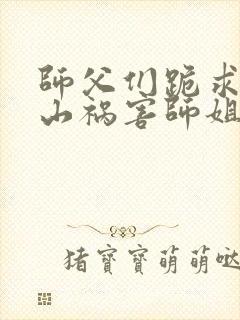 師父们跪求
山祸害師姐
猪寶寶萌萌哒